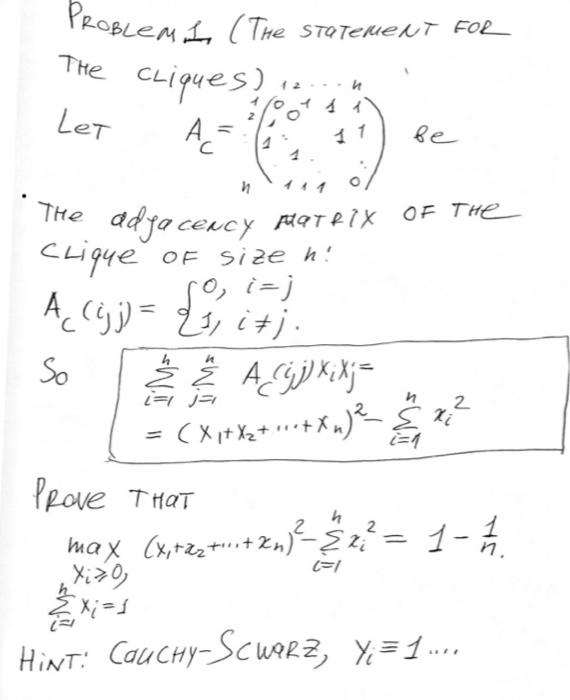 PROBLEM 1, (THE STATEMENT FOR
THE CLIQUES)
LET A_C = (0 1 1 1 ... 1 1 ... 0) BE
THE adjacency MATRIX OF THE
CLIQUE OF SIZE n:
A_C(i,j) = { 0, i=j
1, i≠j.
So ∑_{i=1}^{n} ∑_{j=1}^{n} A_C(i,j) x_i x_j =
= (x_1+x_2+...+x_n)^2 - ∑_{i=1}^{n} x_i^2
PROVE THAT
max (x_1+x_2+...+x_n)^2 - ∑_{i=1}^{n} x_i^2 = 1 - 1/n.
x_i ≥ 0,
∑_{i=1}^{n} x_i = 1
HINT: CAUCHY-SCWARZ, Y_i ≡ 1 ....